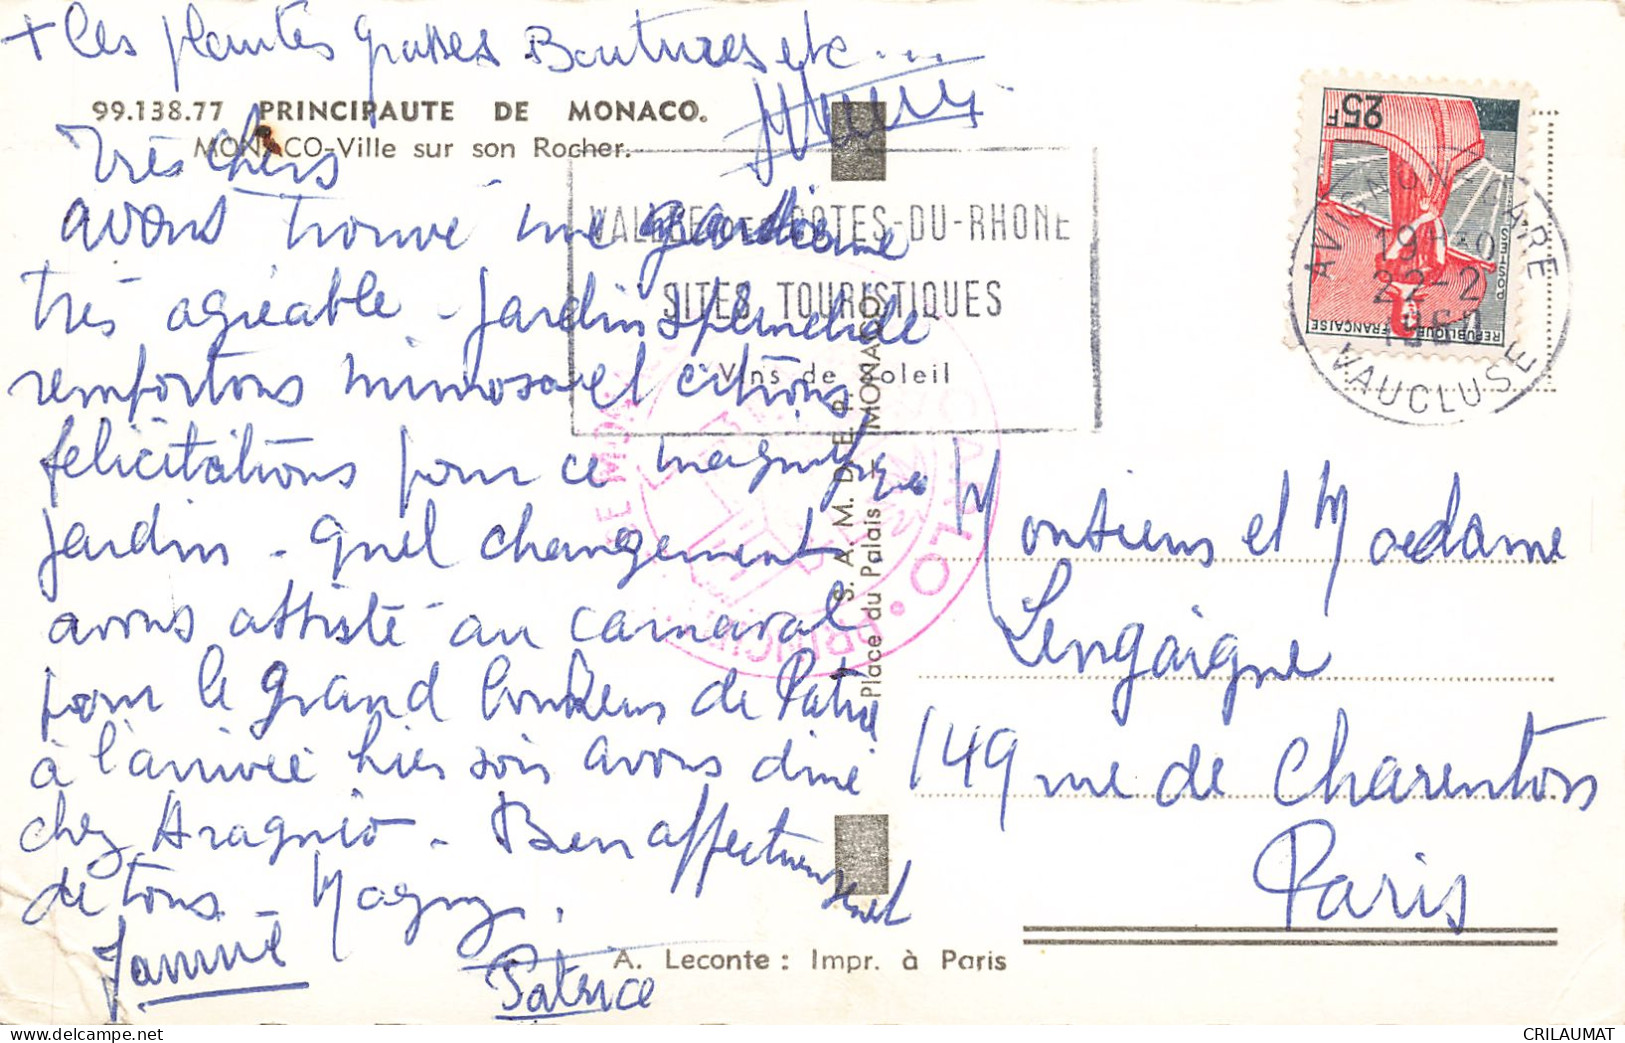 + les plantes grasses Boutures etc...
99.138.77 PRINCIPAUTE DE MONACO.
MONACO-Ville sur son Rocher.
Très chers
avons trouvé une gardienne
très agréable - jardin splendide
remportons mimosa et citrons
félicitations pour ce magnifique
jardin - quel changement
avons assisté au carnaval
pour le grand bonheur de Patrice
à l'arrivée hier soir avons diné
chez Aragnio - Bien affectueusement
de tous - Magny.
Patrice
VALLEE DES COTES-DU-RHONE
SITES TOURISTIQUES
Vins de Soleil
25F
REPUBLIQUE FRANÇAISE
AVIGNON-GARE
19H-0
22-2
1960
VAUCLUSE
S. A. M. D. E. P.
Place du Palais - MONACO
Monsieur et Madame
Lengaigne
149 rue de Charenton
Paris
A. Leconte : Impr. à Paris
https://www.delcampe.net
CRILAUMAT